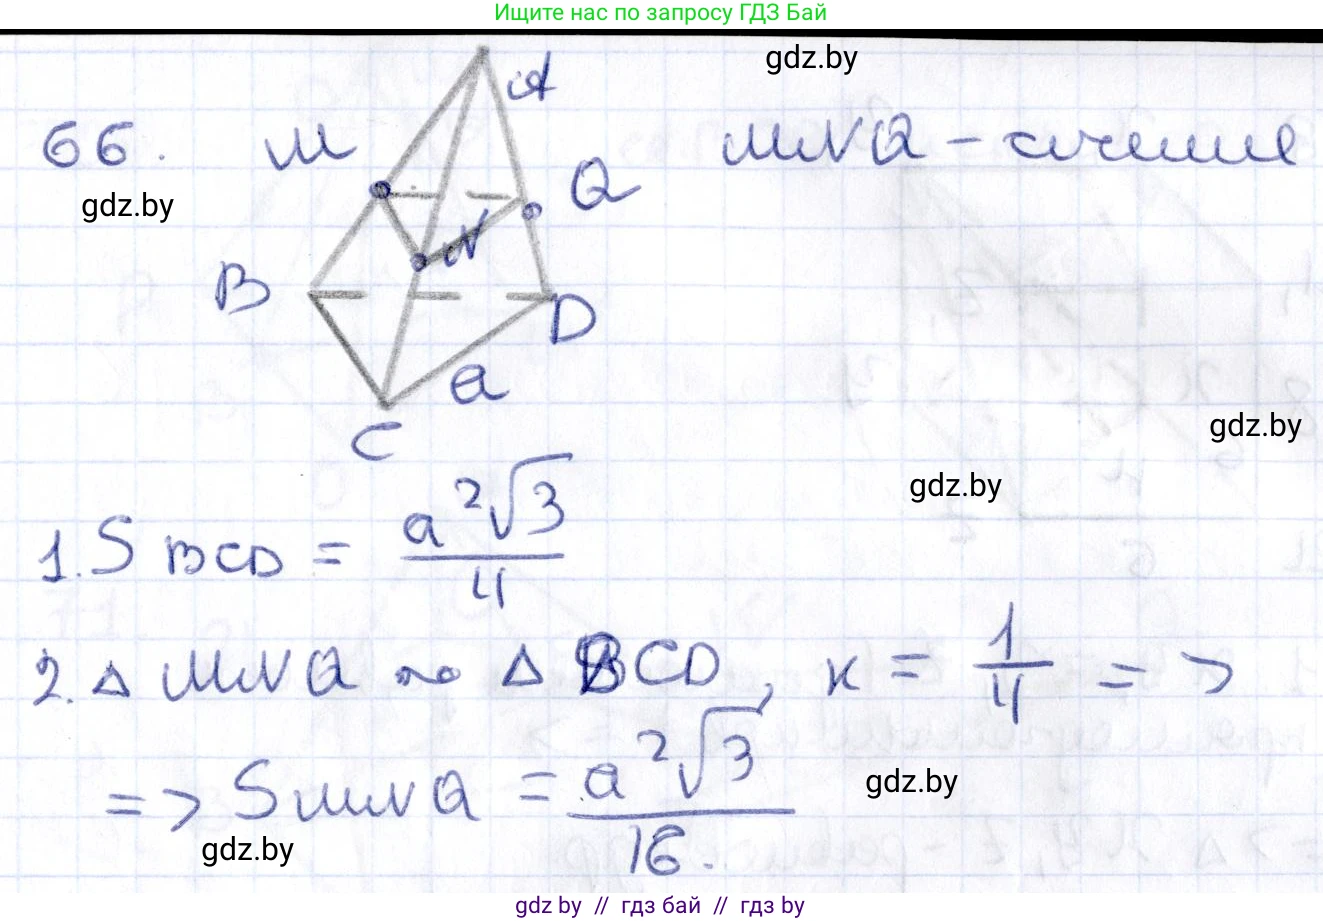 Ищите нас по запросу ГДЗ Бай
gdz.by
A
66. M MNQ - сечение
Q
gdz.by
N
B
D
a
gdz.by
C
gdz.by
1. S BCD = a²√3/4
2. △ MNQ ~ △ BCD, к = 1/4 =>
=> S MNQ = a²√3/16.
gdz.by
gdz.by
gdz.by // гдз бай // гдз by